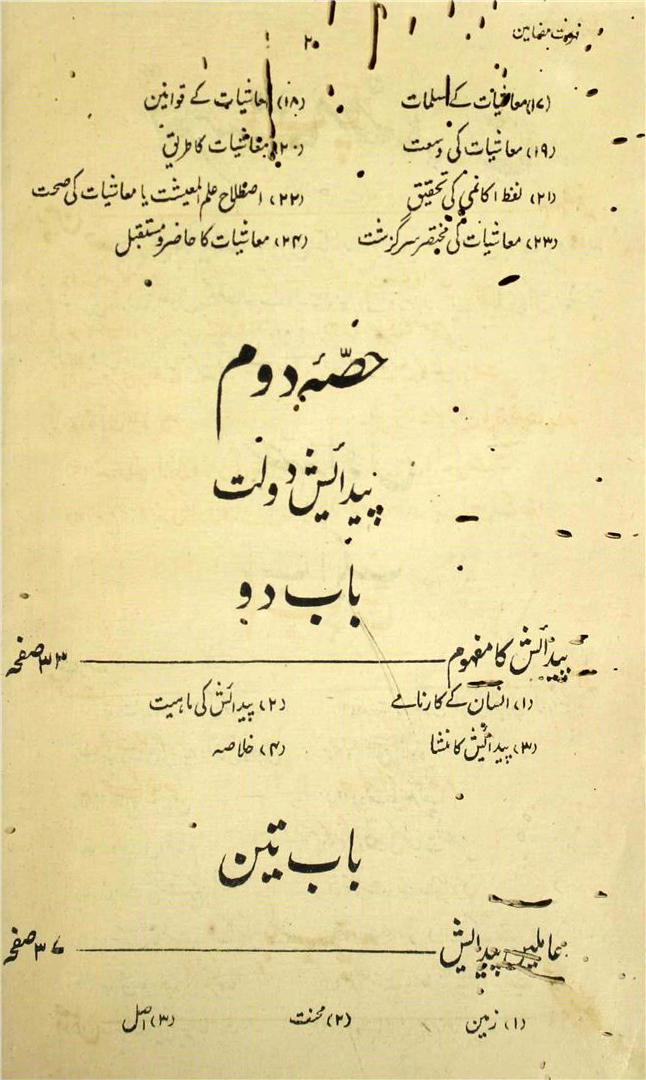 فہرست مضامین
۲۰
(۱۷) معاشیات کے مسلمات (۱۸) معاشیات کے قوانین
(۱۹) معاشیات کی وسعت (۲۰) معاشیات کا طریق
(۲۱) لفظ اکانمی کی تحقیق (۲۲) اصطلاح علم المعیشت یا معاشیات کی صحت
(۲۳) معاشیات کی مختصر سرگزشت (۲۴) معاشیات کا حاضر و مستقبل
حصّۂ دوم
پیدائیش دولت
باب دو
پیدائش کا مفہوم صفحہ ۳۳
(۱) انسان کے کارنامے (۲) پیدائش کی ماہیت
(۳) پیدائیش کا منشا (۴) خلاصہ
باب تین
عاملین پیدائیش صفحہ ۳۷
(۱) زمین (۲) محنت (۳) اصل